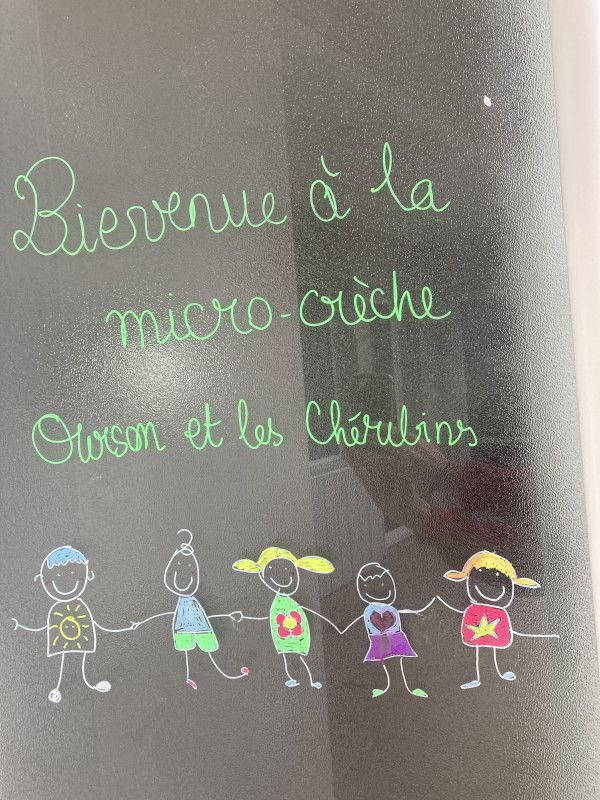 Bienvenue à la
micro-crèche
Ourson et les Chérubins